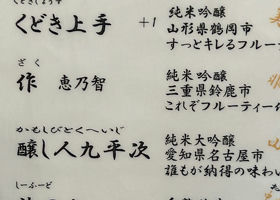 くどき上手 +1
純米吟醸
山形県鶴岡市
すっとキレるフルー
ざく
作 恵乃智
純米吟醸
三重県鈴鹿市
これぞフルーティー
かもしびとくへいじ
醸し人九平次
純米大吟醸
愛知県名古屋市
誰もが納得の味わい
しーふーど